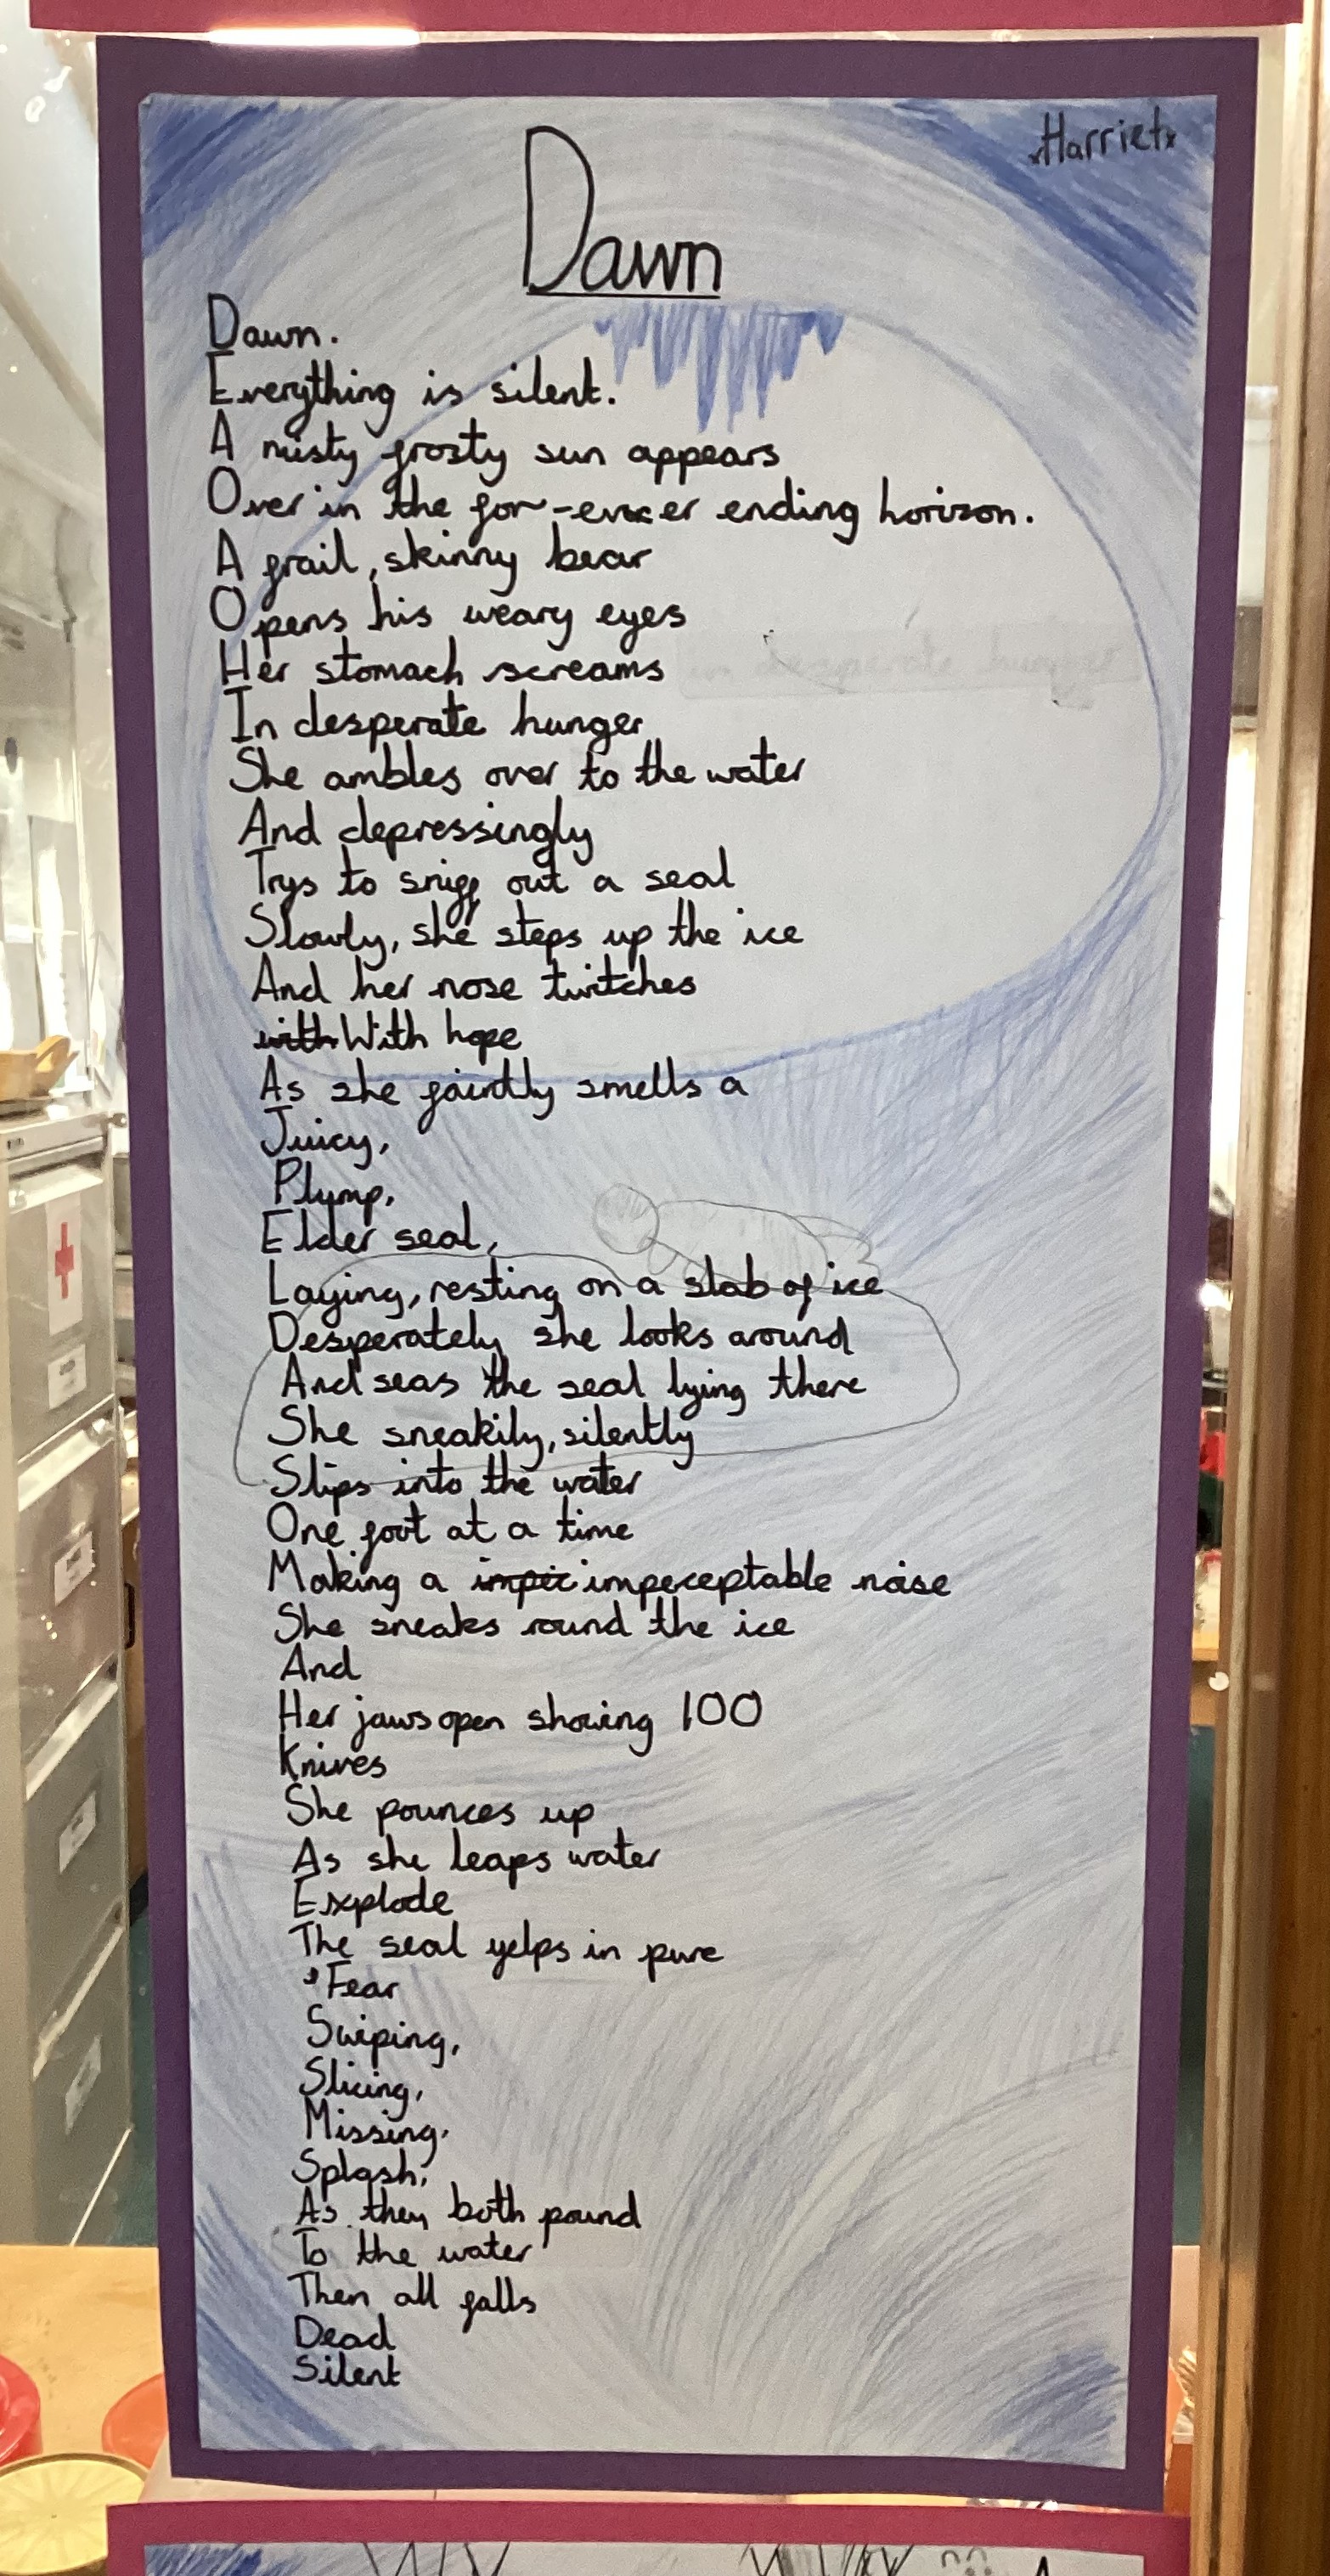 xHarrietx
Dawn
Dawn.
Everything is silent.
A misty frosty sun appears
Over in the for-ever ending horizon.
A frail, skinny bear
Opens his weary eyes
Her stomach screams
In desperate hunger
She ambles over to the water
And depressingly
Trys to sniff out a seal
Slowly, she steps up the ice
And her nose twitches
with With hope
As she faintly smells a
Juicy,
Plump,
Elder seal,
Laying, resting on a slab of ice
Desperately she looks around
And seas the seal lying there
She sneakily, silently
Slips into the water
One foot at a time
Making a impic impeceptable noise
She sneaks round the ice
And
Her jaws open showing 100
Knives
She pounces up
As she leaps water
Explode
The seal yelps in pure
Fear
Swiping,
Slicing,
Missing.
Splash,
As they both pound
To the water
Then all falls
Dead
Silent